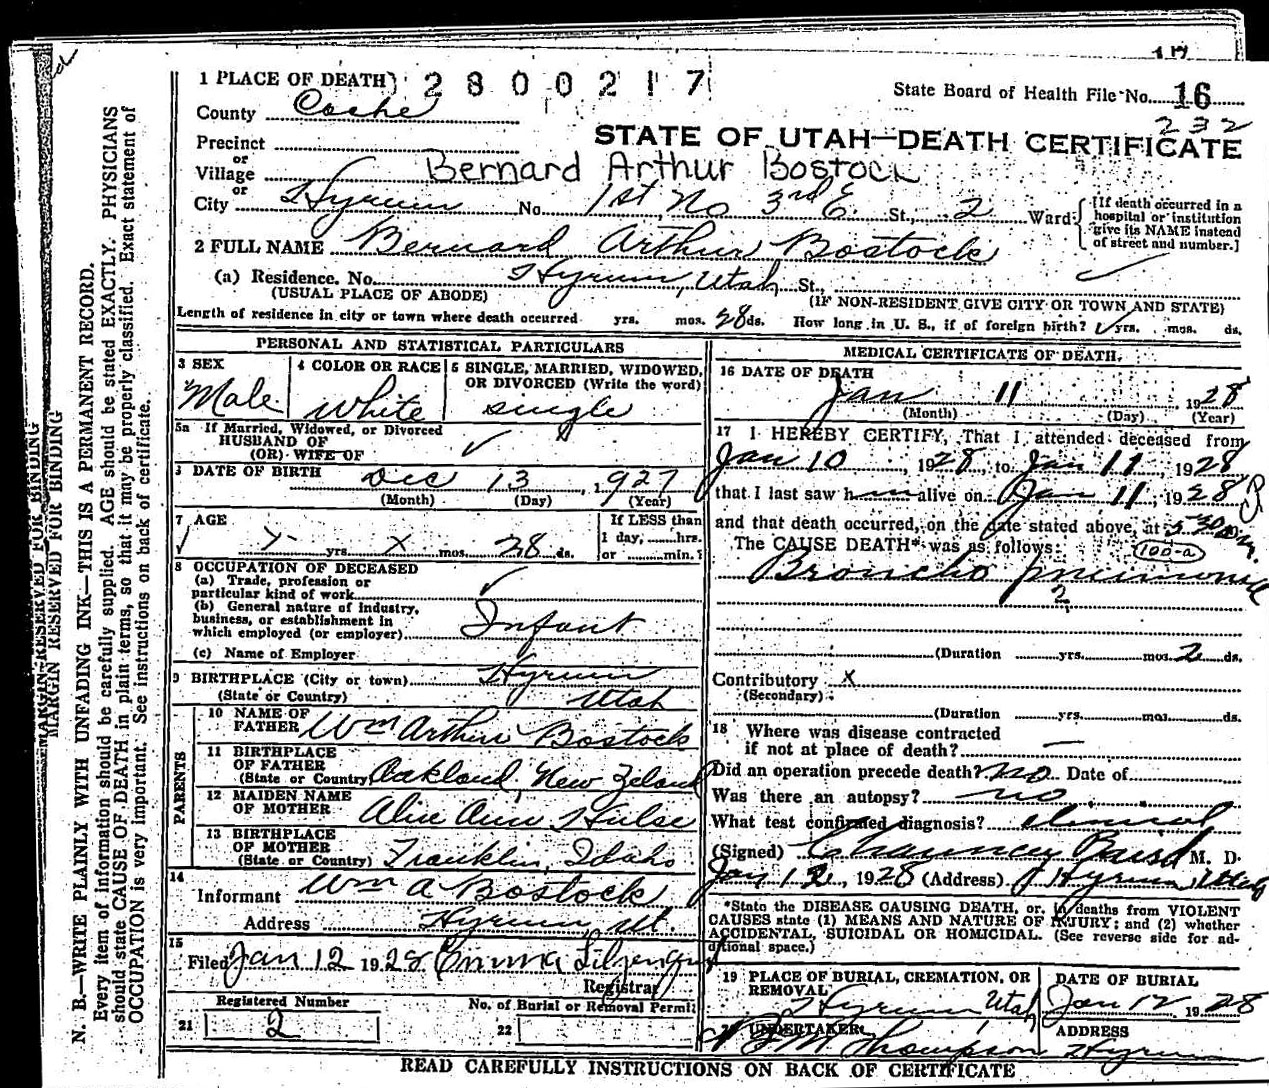 1 PLACE OF DEATH) 2800217
State Board of Health File No. 16
County Cache
232
Precinct
STATE OF UTAH—DEATH CERTIFICATE
or
Village Bernard Arthur Bostock
or
City Hyrum No. 1st No 3rd E. St., 2 Ward
[If death occurred in a hospital or institution give its NAME instead of street and number.]
2 FULL NAME Bernard Arthur Bostock
(a) Residence. No. Hyrum, Utah St.,
(USUAL PLACE OF ABODE) (IF NON-RESIDENT GIVE CITY OR TOWN AND STATE)
Length of residence in city or town where death occurred yrs. mos. 28 ds. How long in U. S., if of foreign birth? yrs. mos. ds.
PERSONAL AND STATISTICAL PARTICULARS
3 SEX 4 COLOR OR RACE 5 SINGLE, MARRIED, WIDOWED, OR DIVORCED (Write the word)
Male White single
5a If Married, Widowed, or Divorced
HUSBAND OF
(OR) WIFE OF
DATE OF BIRTH Dec 13, 1927
(Month) (Day) (Year)
7 AGE If LESS than
1 day, hrs.
x yrs. x mos. 28 ds. or min.?
8 OCCUPATION OF DECEASED
(a) Trade, profession or
particular kind of work
(b) General nature of industry,
business, or establishment in
which employed (or employer) Infant
(c) Name of Employer
9 BIRTHPLACE (City or town) Hyrum
(State or Country) Utah
PARENTS
10 NAME OF
FATHER Wm Arthur Bostock
11 BIRTHPLACE
OF FATHER
(State or Country) Oakland, New Zeland
12 MAIDEN NAME
OF MOTHER Alice Ann Hulse
13 BIRTHPLACE
OF MOTHER
(State or Country) Franklin, Idaho
14
Informant Wm A Bostock
Address Hyrum Ut.
15
Filed Jan 12 1928 Emma
Registrar
Registered Number No. of Burial or Removal Permit
21 2 22
MEDICAL CERTIFICATE OF DEATH.
16 DATE OF DEATH
Jan 11 1928
(Month) (Day) (Year)
17 I HEREBY CERTIFY, That I attended deceased from
Jan 10, 1928, to Jan 11, 1928
that I last saw h alive on Jan 11, 1928
and that death occurred, on the date stated above, at 530
The CAUSE DEATH* was as follows:
100-a
Broncho pneumonia
2
(Duration yrs. mos. 2 ds.
Contributory x
(Secondary)
(Duration yrs. mos. ds.
18 Where was disease contracted
if not at place of death? —
Did an operation precede death? no Date of
Was there an autopsy? no
What test confirmed diagnosis? clinical
(Signed) Chauncey Baird M. D.
Jan 12, 1928 (Address) Hyrum, Utah
*State the DISEASE CAUSING DEATH, or, in deaths from VIOLENT
CAUSES state (1) MEANS AND NATURE OF INJURY; and (2) whether
ACCIDENTAL, SUICIDAL OR HOMICIDAL. (See reverse side for ad-
ditional space.)
19 PLACE OF BURIAL, CREMATION, OR REMOVAL DATE OF BURIAL
Hyrum, Utah Jan 12 1928
UNDERTAKER ADDRESS
Thompson Hyrum
READ CAREFULLY INSTRUCTIONS ON BACK OF CERTIFICATE
MARGIN RESERVED FOR BINDING
MARGIN RESERVED FOR BINDING
N. B.—WRITE PLAINLY WITH UNFADING INK—THIS IS A PERMANENT RECORD.
Every item of information should be carefully supplied. AGE should be stated EXACTLY. PHYSICIANS
should state CAUSE OF DEATH in plain terms, so that it may be properly classified. Exact statement of
OCCUPATION is very important. See instructions on back of certificate.